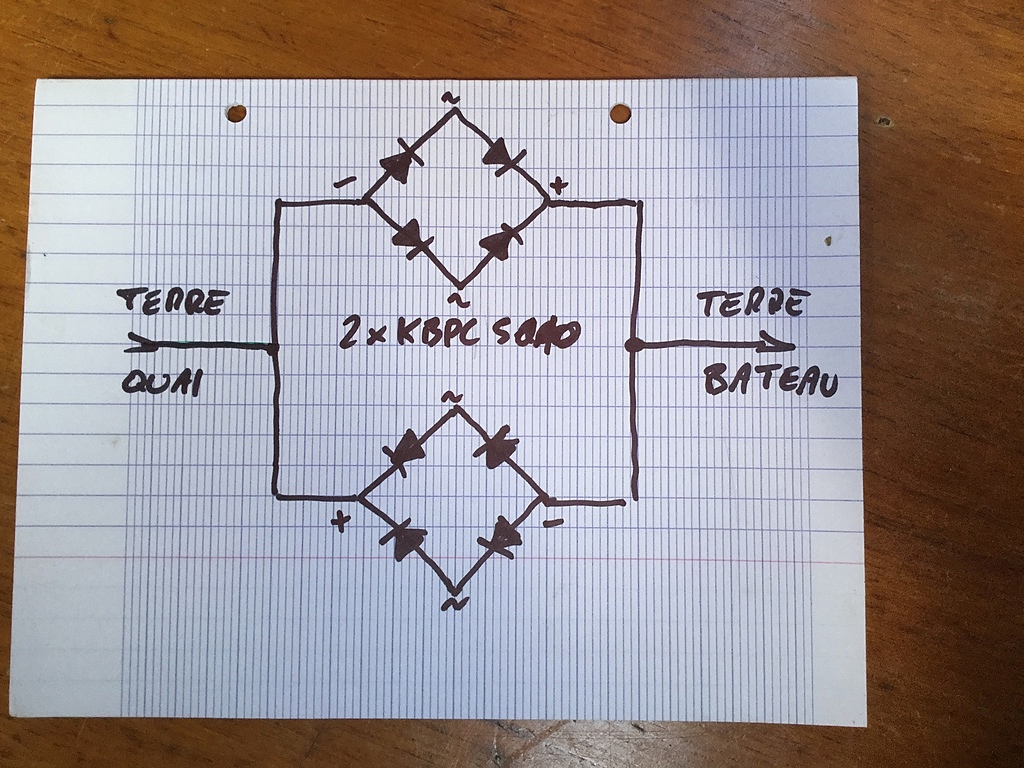 ~
- +
TERRE
QUAI
2 x KBPC 5040
TERRE
BATEAU
~
~
+ -
~